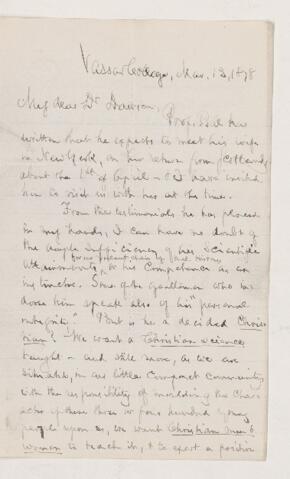 Vassar College, Mar. 13, 1878
My dear Dr Dawson,
Prof. has
written that he expects to meet his wife
in New York, on his return from
about the 1st of April & I have invited
him to visit us with her at the time.
From the testimonials he has placed
in my hands, I can have no doubt of
the ample sufficiency of his Scientific
attainments, for our present chair of Nat. History
& his Competence as an
instructor. Some of the gentlemen who
him speak also of his "personal
integrity." But is he a decided Chris-
tian? We want a Christian science
taught - and still more, as we are
situated, in our little compact community
with the responsibility of moulding the Char-
acter of these three or four hundred young
people upon us, we want Christian men &
women to teach it, & to exert a positive